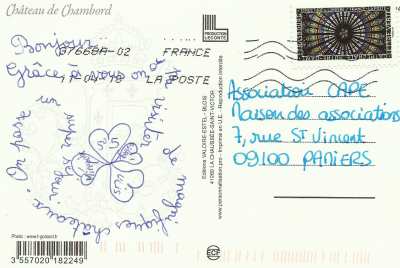 Château de Chambord
Bonjour,
Grâce à vous on a pu visiter de magnifiques châteaux. On passe un super séjour
37668A-02 FRANCE
11-04-18 LA POSTE
PRODUCTION
LECONTE
Editions VALOIRE-ESTEL - BLOIS
41260 LA CHAUSSÉE-SAINT-VICTOR
www.personnalisation.pro - Imprimé en U.E. - Reproduction interdite
Association CAPE
Maison des associations
7, rue St Vincent
09100 PAMIERS
Photo : f-godard.fr
3 557020 182249
ECF